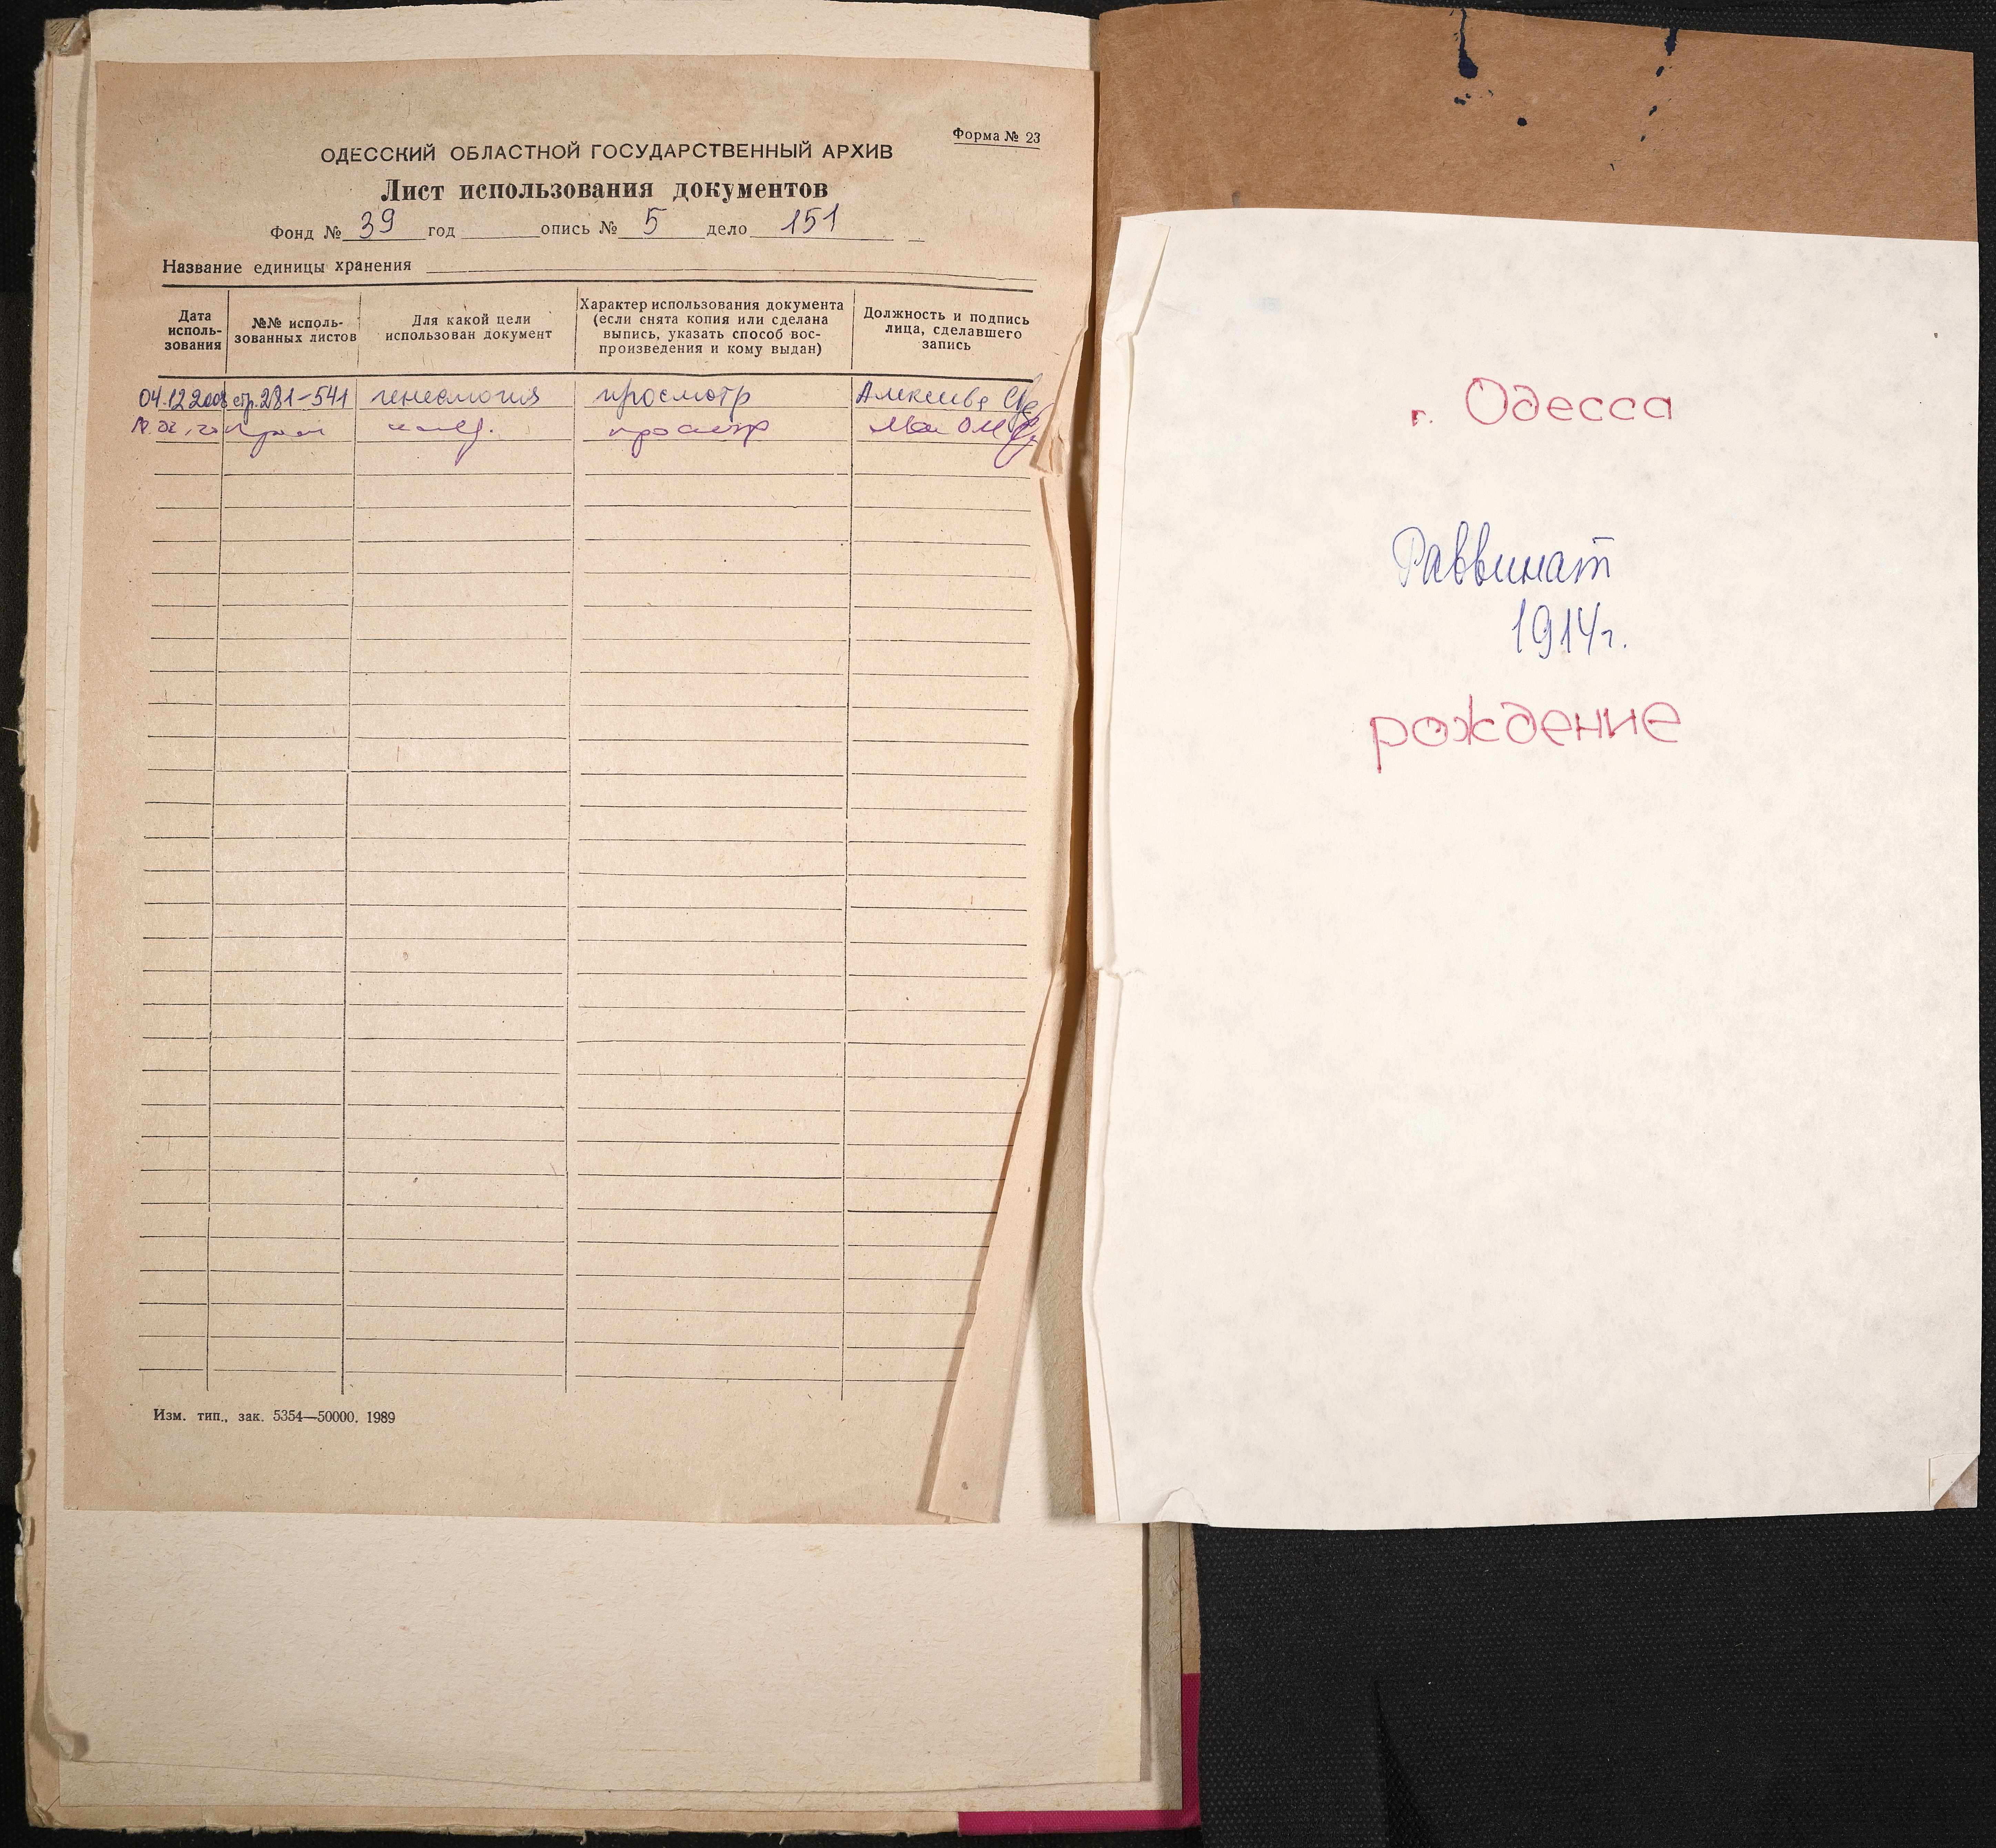 Форма № 23
ОДЕССКИЙ ОБЛАСТНОЙ ГОСУДАРСТВЕННЫЙ АРХИВ
Лист использования документов
Фонд № 39 год опись № 5 дело 151
Название единицы хранения
Дата
исполь-
зования
№№ исполь-
зованных листов
Для какой цели
использован документ
Характер использования документа
(если снята копия или сделана
выпись, указать способ вос-
произведения и кому выдан)
Должность и подпись
лица, сделавшего
запись
04.12.2008 стр. 281-541 генеалогия просмотр
просмотр
Изм. тип., зак. 5354—50000. 1989
г. Одесса
Раввинат
1914г.
рождение